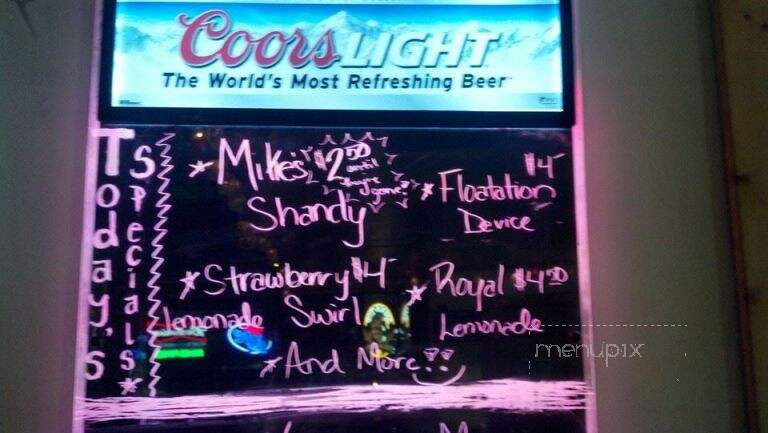 Coors LIGHT
The World's Most Refreshing Beer
Today's
Specials*
* Mike's $2.50
until they're gone!
Shandy
* Floatation $4
Device
* Strawberry $4
Lemonade Swirl
* Royal $4.50
Lemonade
* And More!!
menupix